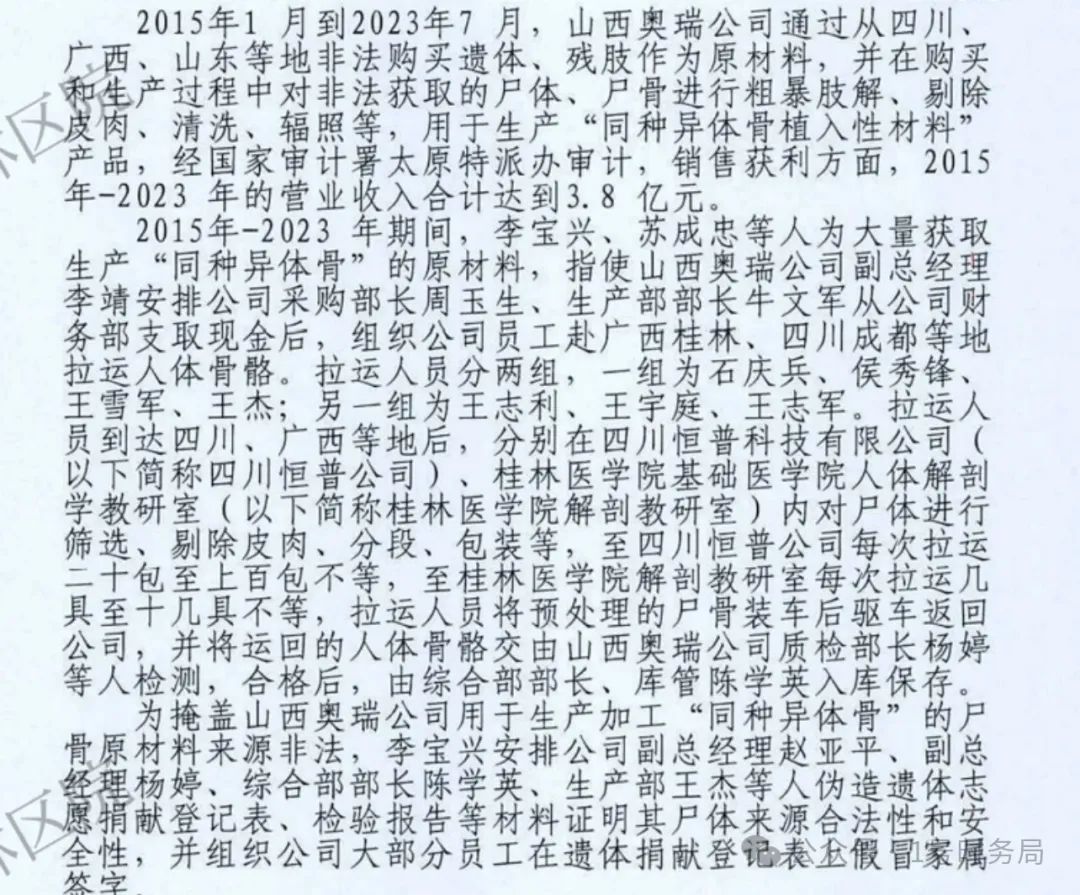 2015年1 月到2023年7 月，山西奥瑞公司通过从四川、
广西、山东等地非法购买遗体、残肢作为原材料，并在购买
和生产过程中对非法获取的尸体、尸骨进行粗暴肢解、剔除
皮肉、清洗、辐照等，用于生产“同种异体骨植入性材料”
产品，经国家审计署太原特派办审计，销售获利方面，2015
年-2023 年的营业收入合计达到3.8 亿元。
2015年-2023 年期间，李宝兴、苏成忠等人为大量获取
生产“同种异体骨”的原材料，指使山西奥瑞公司副总经理
李靖安排公司采购部长周玉生、生产部部长牛文军从公司财
务部支取现金后，组织公司员工赴广西桂林、四川成都等地
拉运人体骨骼。拉运人员分两组，一组为石庆兵、侯秀锋、
王雪军、王杰；另一组为王志利、王宇庭、王志军。拉运人
员到达四川、广西等地后，分别在四川恒普科技有限公司（
以下简称四川恒普公司）、桂林医学院基础医学院人体解剖
学教研室（以下简称桂林医学院解剖教研室）内对尸体进行
筛选、剔除皮肉、分段、包装等，至四川恒普公司每次拉运
二十包至上百包不等，至桂林医学院解剖教研室每次拉运几
具至十几具不等，拉运人员将预处理的尸骨装车后驱车返回
公司，并将运回的人体骨骼交由山西奥瑞公司质检部长杨婷
等人检测，合格后，由综合部部长、库管陈学英入库保存。
为掩盖山西奥瑞公司用于生产加工“同种异体骨”的尸
骨原材料来源非法，李宝兴安排公司副总经理赵亚平、副总
经理杨婷、综合部部长陈学英、生产部王杰等人伪造遗体志
愿捐献登记表、检验报告等材料证明其尸体来源合法性和安
全性，并组织公司大部分员工在遗体捐献登记表上假冒家属
签字。
区院
区院